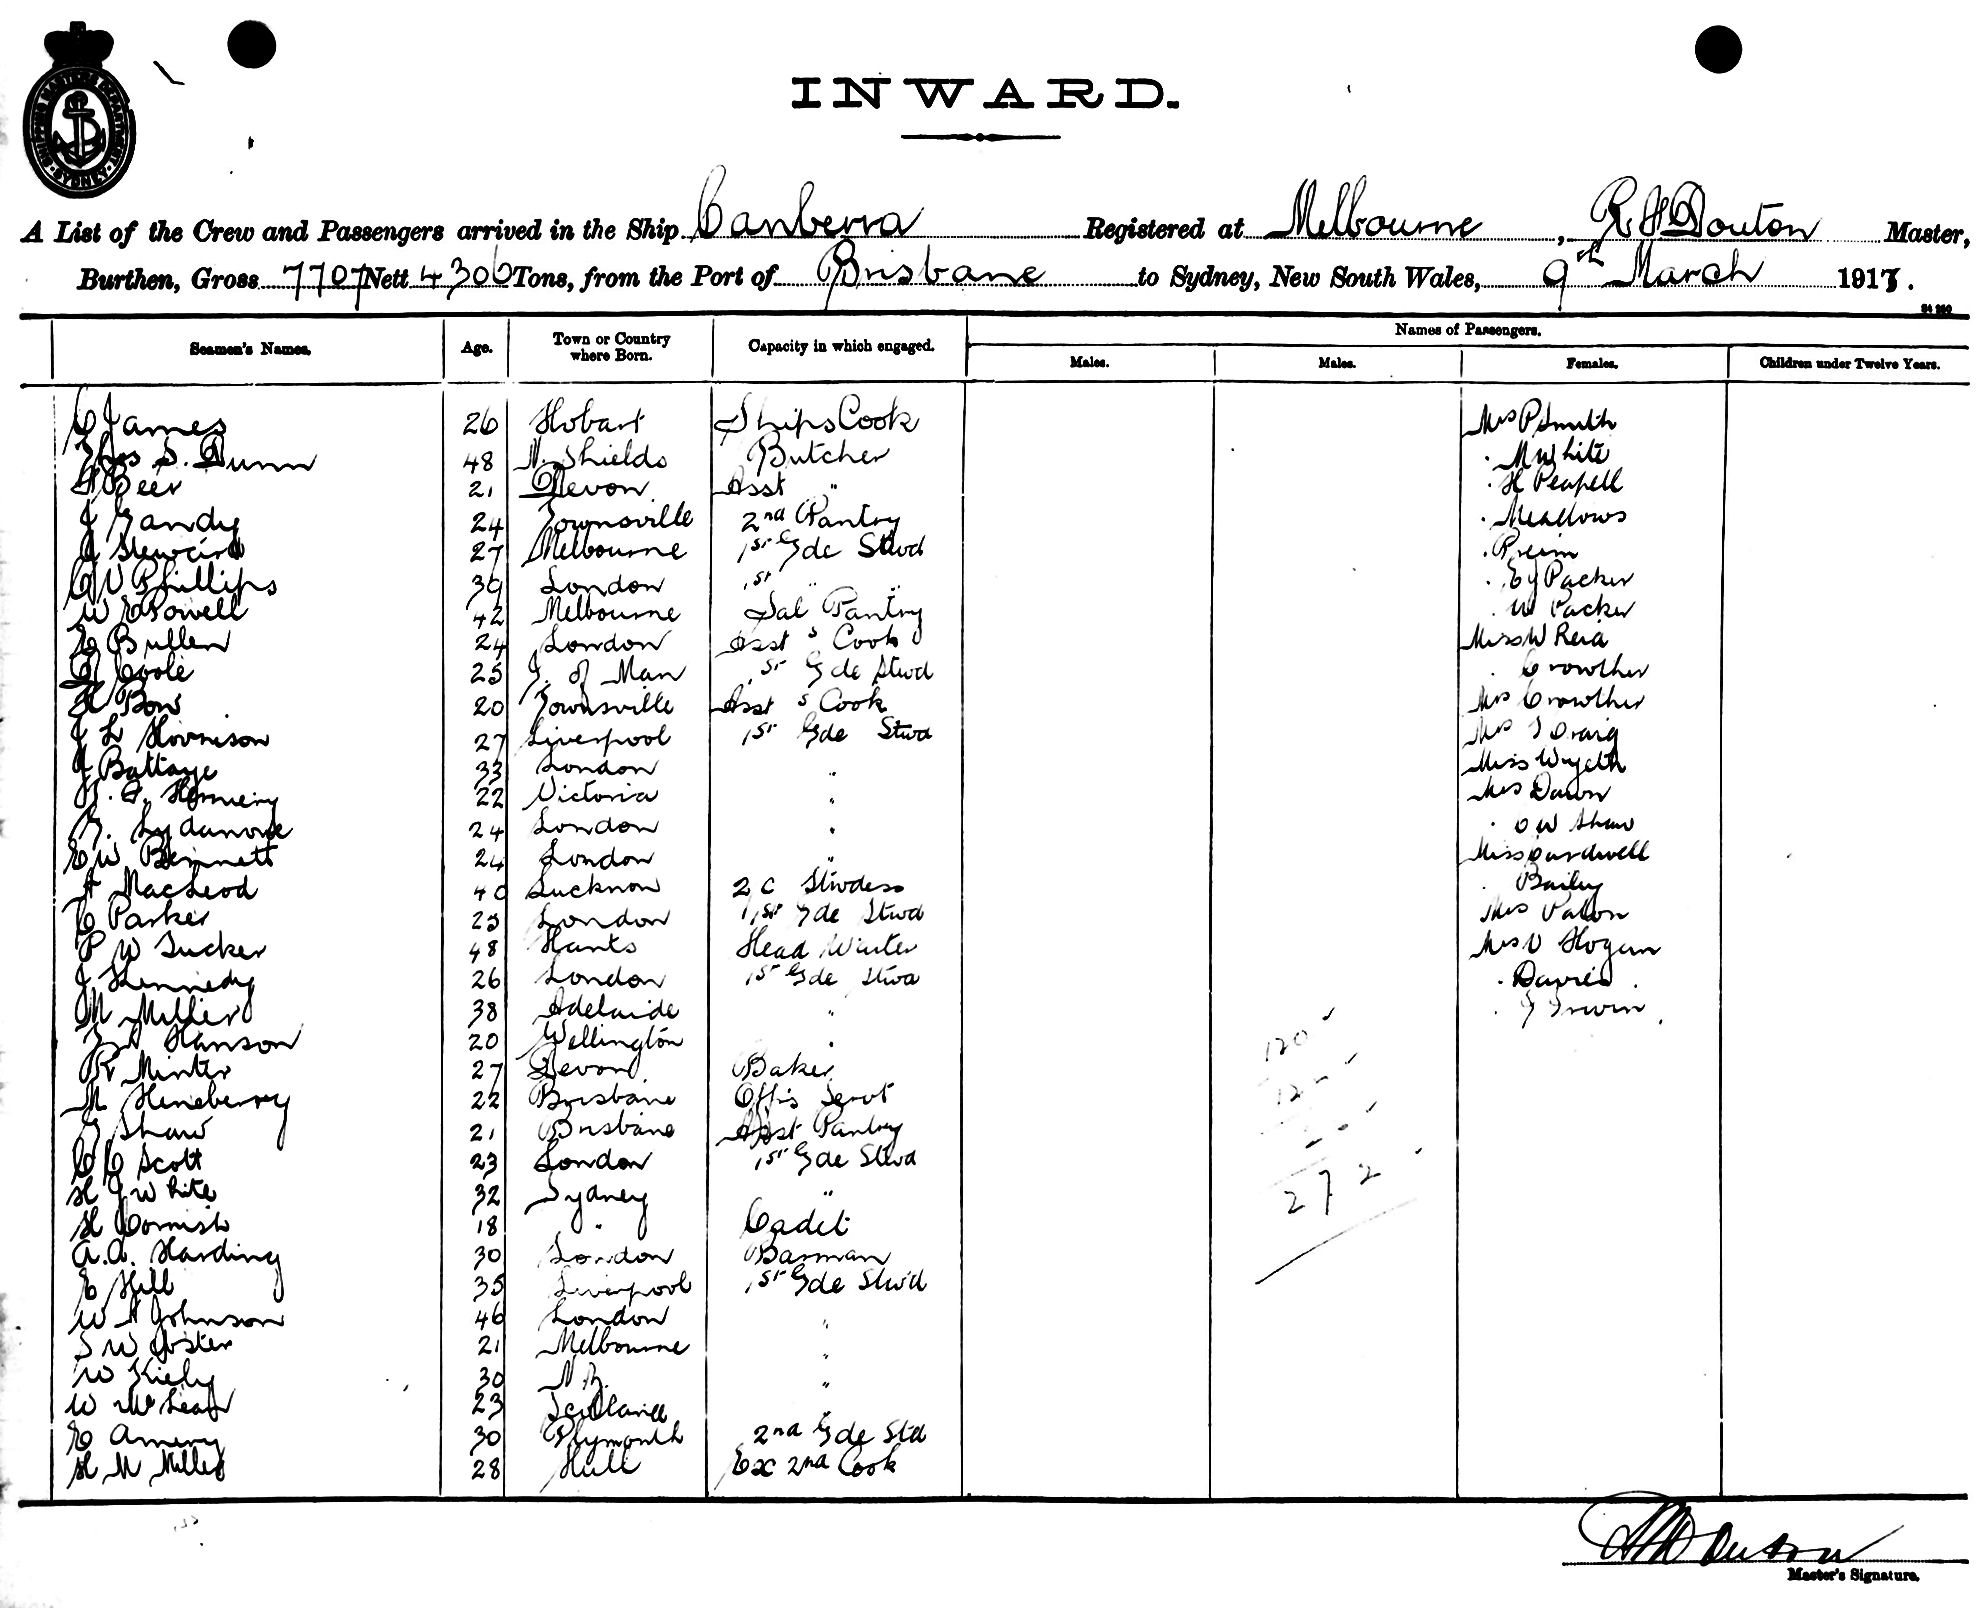 SHIPPING MASTERS DEPARTMENT SYDNEY
INWARD.
A List of the Crew and Passengers arrived in the Ship Canberra Registered at Melbourne, R H Douton Master,
Burthen, Gross 7707 Nett 4306 Tons, from the Port of Brisbane to Sydney, New South Wales, 9th March 1917.
Names of Passengers.
Seamen's Names. Age. Town or Country where Born. Capacity in which engaged. Males. Males. Females. Children under Twelve Years.
C James 26 Hobart Ships Cook Mrs P Smith
Thos S. Dunn 48 N. Shields Butcher . M White
A Beer 21 Devon Asst " . H Peapell
J Gandy 24 Townsville 2nd Pantry . Meadows
J Steward 27 Melbourne 1st Gde Stwd .
C V Phillips 39 London 1st " " . E J Packer
W E Powell 42 Melbourne Sal Pantry . W Packer
E Bullen 24 London Asst s Cook Miss W Reid
Coole 25 I. of Man 1st Gde Stwd . Crowther
H Bow 20 Townsville Asst s Cook Mrs Crowther
J L Morrison 27 Liverpool 1st Gde Stwd Mrs Craig
J Battaye 33 London " Miss Wyeth
22 Victoria " Mrs Dawn
24 London " . O W Shaw
E W Bennett 24 London " Miss Cardwell
A MacLeod 40 Lucknow 2 C Stwdess . Bailey
C Parker 25 London 1st Gde Stwd Mrs Paton
P W Tucker 48 Hants Head Waiter Mrs V Hogan
J Kennedy 26 London 1st Gde Stwd . Davies
M Miller 38 Adelaide " . J Irwin
Hanson 20 Wellington "
R Minter 27 Devon Baker
M Heneberry 22 Brisbane Offis Servt
J Shaw 21 Brisbane Asst Pantry
C C Scott 23 London 1st Gde Stwd
H J White 32 Sydney "
272
H Cornish 18 " Cadet
A.A. Harding 30 London Barman
E Hill 35 Liverpool 1st Gde Stwd
W A Johnson 46 London "
S W Foster 21 Melbourne "
W Kiely 30 N.Z. "
W McLean 23 Scotland "
E Amery 30 Plymouth 2nd Gde Std
H M Millis 28 Hull Ex 2nd Cook
Master's Signature.